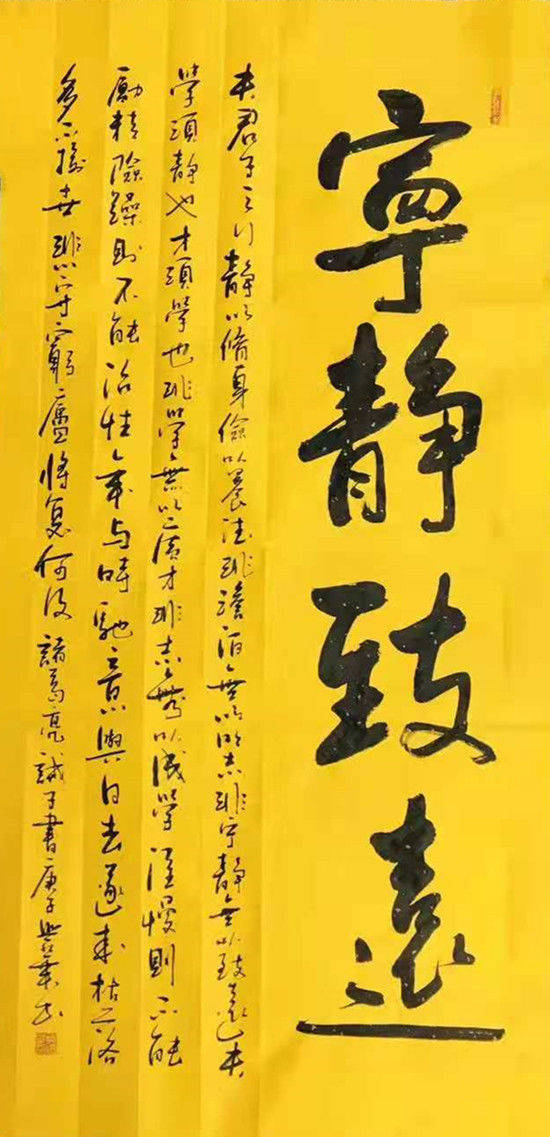 寧靜致遠
夫君子之行靜以脩身儉以養德非澹泊無以明志非宁靜無以致遠夫
學須靜也才須學也非學無以廣才非志無以成學淫慢則不能
勵精險躁則不能治性年与時馳意與日去遂成枯落
多不接世悲守窮廬將復何及諸葛亮誡子書庚子书